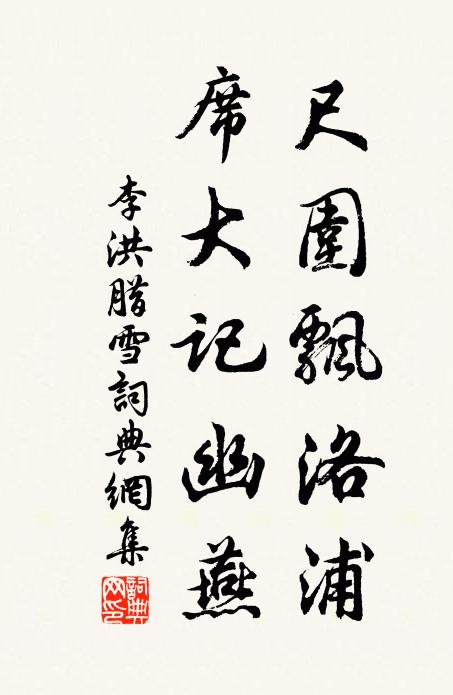 尺圍飄洛浦
席大記幽燕
李洪腊雪詞典網集
詞典
网印